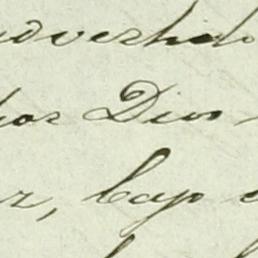 advertido
por Dios
r, bajo